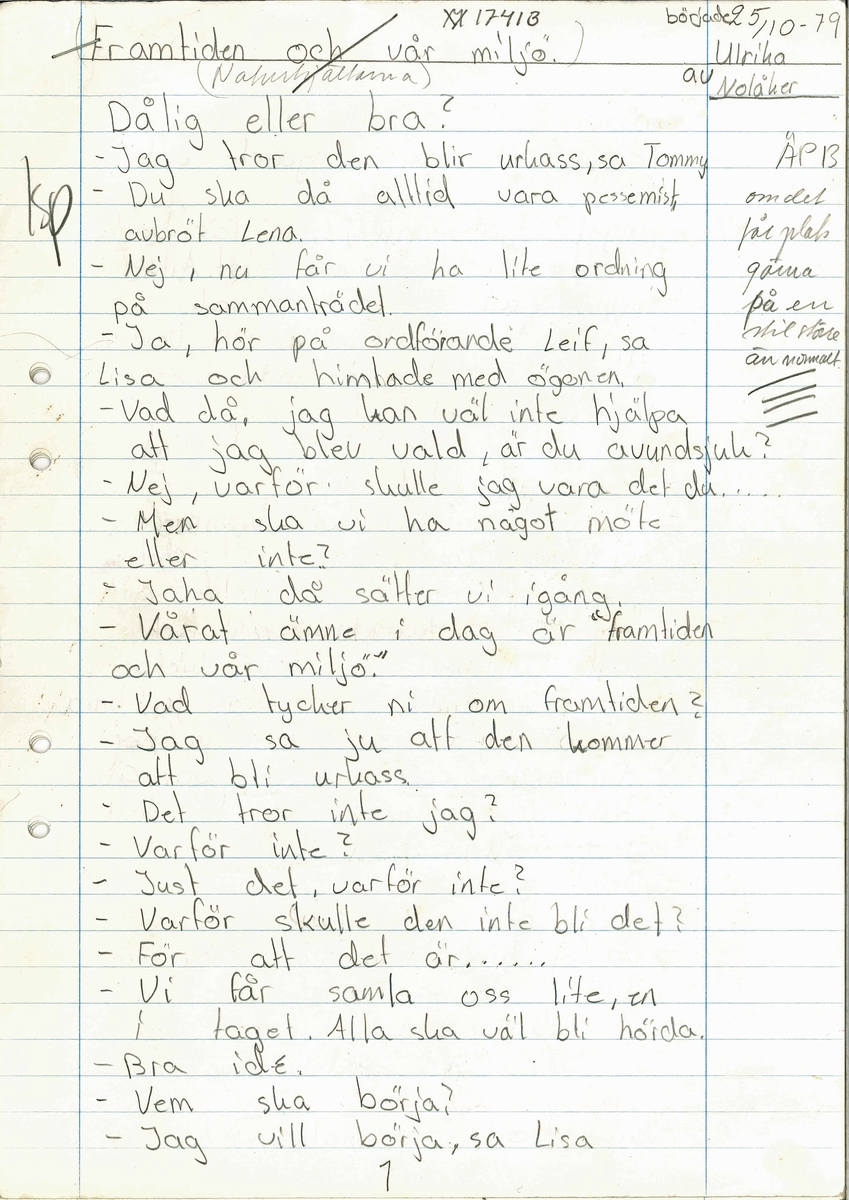 XX 1741B
började 25/10-79
(Framtiden och vår miljö.)
Ulrika
(Naturhjältarna)
av Nolåker
Dålig eller bra?
- Jag tror den blir urkass, sa Tommy
ÄP13
- Du ska då alltid vara pessemist,
om det
avbröt Lena.
får plats
- Nej, nu får vi ha lite ordning
gärna
på sammanträdet.
på en
- Ja, hör på ordförande Leif, sa
stil större
Lisa och himlade med ögonen.
än normalt
- Vad då, jag kan väl inte hjälpa
att jag blev vald, är du avundsjuk?
- Nej, varför skulle jag vara det du.....
- Men ska vi ha något möte
eller inte?
- Jaha då sätter vi igång.
- Vårat ämne i dag är "framtiden
och vår miljö."
- Vad tycker ni om framtiden?
- Jag sa ju att den kommer
att bli urkass.
- Det tror inte jag?
- Varför inte?
- Just det, varför inte?
- Varför skulle den inte bli det?
- För att det är......
- Vi får samla oss lite, en
i taget. Alla ska väl bli hörda.
- Bra idé.
- Vem ska börja?
- Jag vill börja, sa Lisa
1